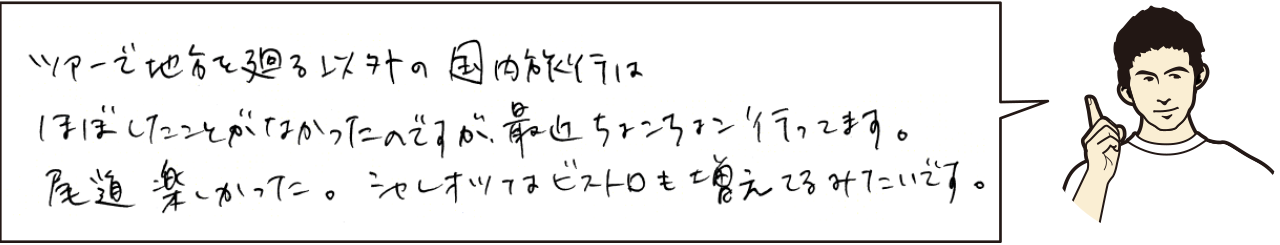 ツアーで地方を廻る以外の国内旅行は
ほぼしたことがなかったのですが、最近ちょこちょこ行ってます。
尾道楽しかった。シャレオツなビストロも増えてるみたいです。